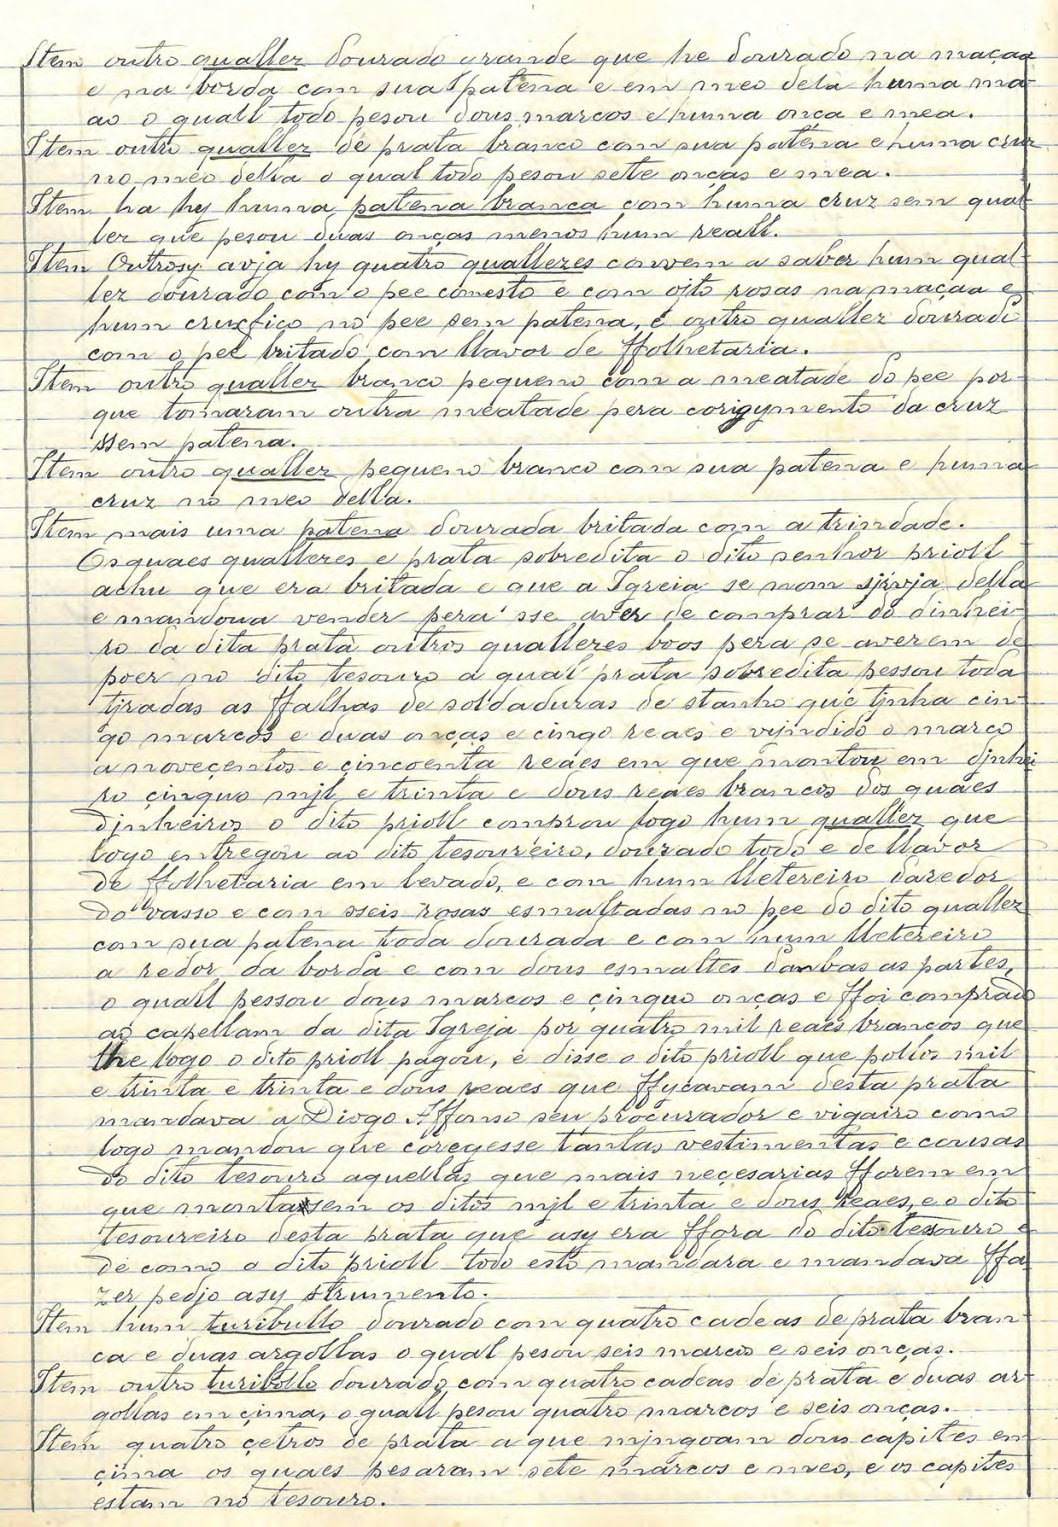 Item outro quallez dourado grande que he dourado na maçaa
e na borda com sua patena e em meo dela huma ma
ao o quall todo pesou dous marcos e huma onça e mea.
Item outro quallez de prata branco com sua patena e huma cruz
no meo della o qual todo pesou sete onças e mea.
Item ha hy huma patena branca com huma cruz sem qual
lez que pesou duas onças menos hum reall.
Item Outrosy avja hy quatro quallezes convem a saber hum qual-
lez dourado com o pee conesto e com ojto rosas na maçaa e
hum cruxfiço no pee sem patena, e outro quallez dourado
com o pee britado com llavor de ffolhetaria.
Item outro quallez branco pequeno com a meatade do pee por-
que tomaram outra meatade pera corigymento da cruz
ssem patena.
Item outro quallez pequeno branco com sua patena e huma
cruz no meo della.
Item mais uma patena dourada britada com a trindade.
Os quaes quallezes e prata sobredita o dito senhor prioll
achu que era britada e que a Igreia se nom sjrvja della
e mandoua vender pera sse aver de comprar do dinhei-
ro da dita prata outros quallezes boos pera se averem de
poer no dito tesouro a qual prata sobredita pessou toda
tjradas as ffalhas de soldaduras de stanho que tjnha cin-
go marcos e duas onças e cingo reaes e vijndido o marco
a noveçentos e çincoenta reaes em que montou em djnhei
ro çinquo mjl e trinta e dous reaes brancos dos quaes
djnheiros o dito prioll comprou logo hum quallez que
logo entregou ao dito tesoureiro, dourado todo e de llavor
de ffolhetaria em levado, e com hum lletereiro daredor
do vasso e com sseis rosas esmaltadas no pee do dito quallez
com sua patena toda dourada e com hum lletereiro
a redor da borda e com dous esmaltes dambas as partes,
o quall pessou dous marcos e çinquo onças e ffoi comprado
ao capellam da dita Igreja por quatro mil reaes brancos que
lhe logo o dito prioll pagou, e disse o dito prioll que pollos mil
e trinta e trinta e dous reaes que ffycavam desta prata
mandava a Diogo Affomso seu procurador e vigairo como
logo mandou que coregesse tantas vestimentas e cousas
do dito tesouro aquellas que mais neçesarias fforem em
que montasem os ditos mjl e trinta e dous Reaes, e o dito
tesoureiro desta prata que asy era ffora do dito tesouro e
de como o dito prioll todo esto mandara e mandava ffa
zer pedjo asy strumento.
Item hum turibullo dourado com quatro cadeas de prata bran-
ca e duas argollas o qual pesou seis marcos e seis onças.
Item outro turibollo dourado com quatro cadeas de prata e duas ar-
gollas em çima, o quall pesou quatro marcos e seis onças.
Item quatro çetros de prata a que mjngoam dous capites em
çima os quaes pesaram sete marcos e meo, e os capites
estam no tesouro.